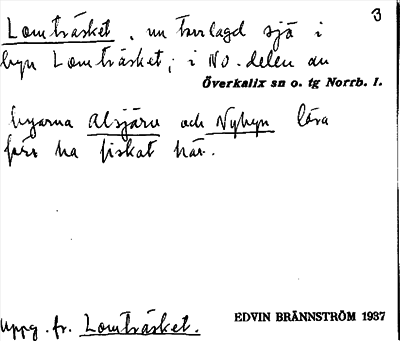 3
Lomträsket, nu torrlagd sjö i
byn Lomträsket; i NO. delen av
Överkalix sn o. tg Norrb. l.
byarna Alsjärv och Nybyn lära
förr ha fiskat här.
Uppg. fr. Lomträsket.
EDVIN BRÄNNSTRÖM 1937